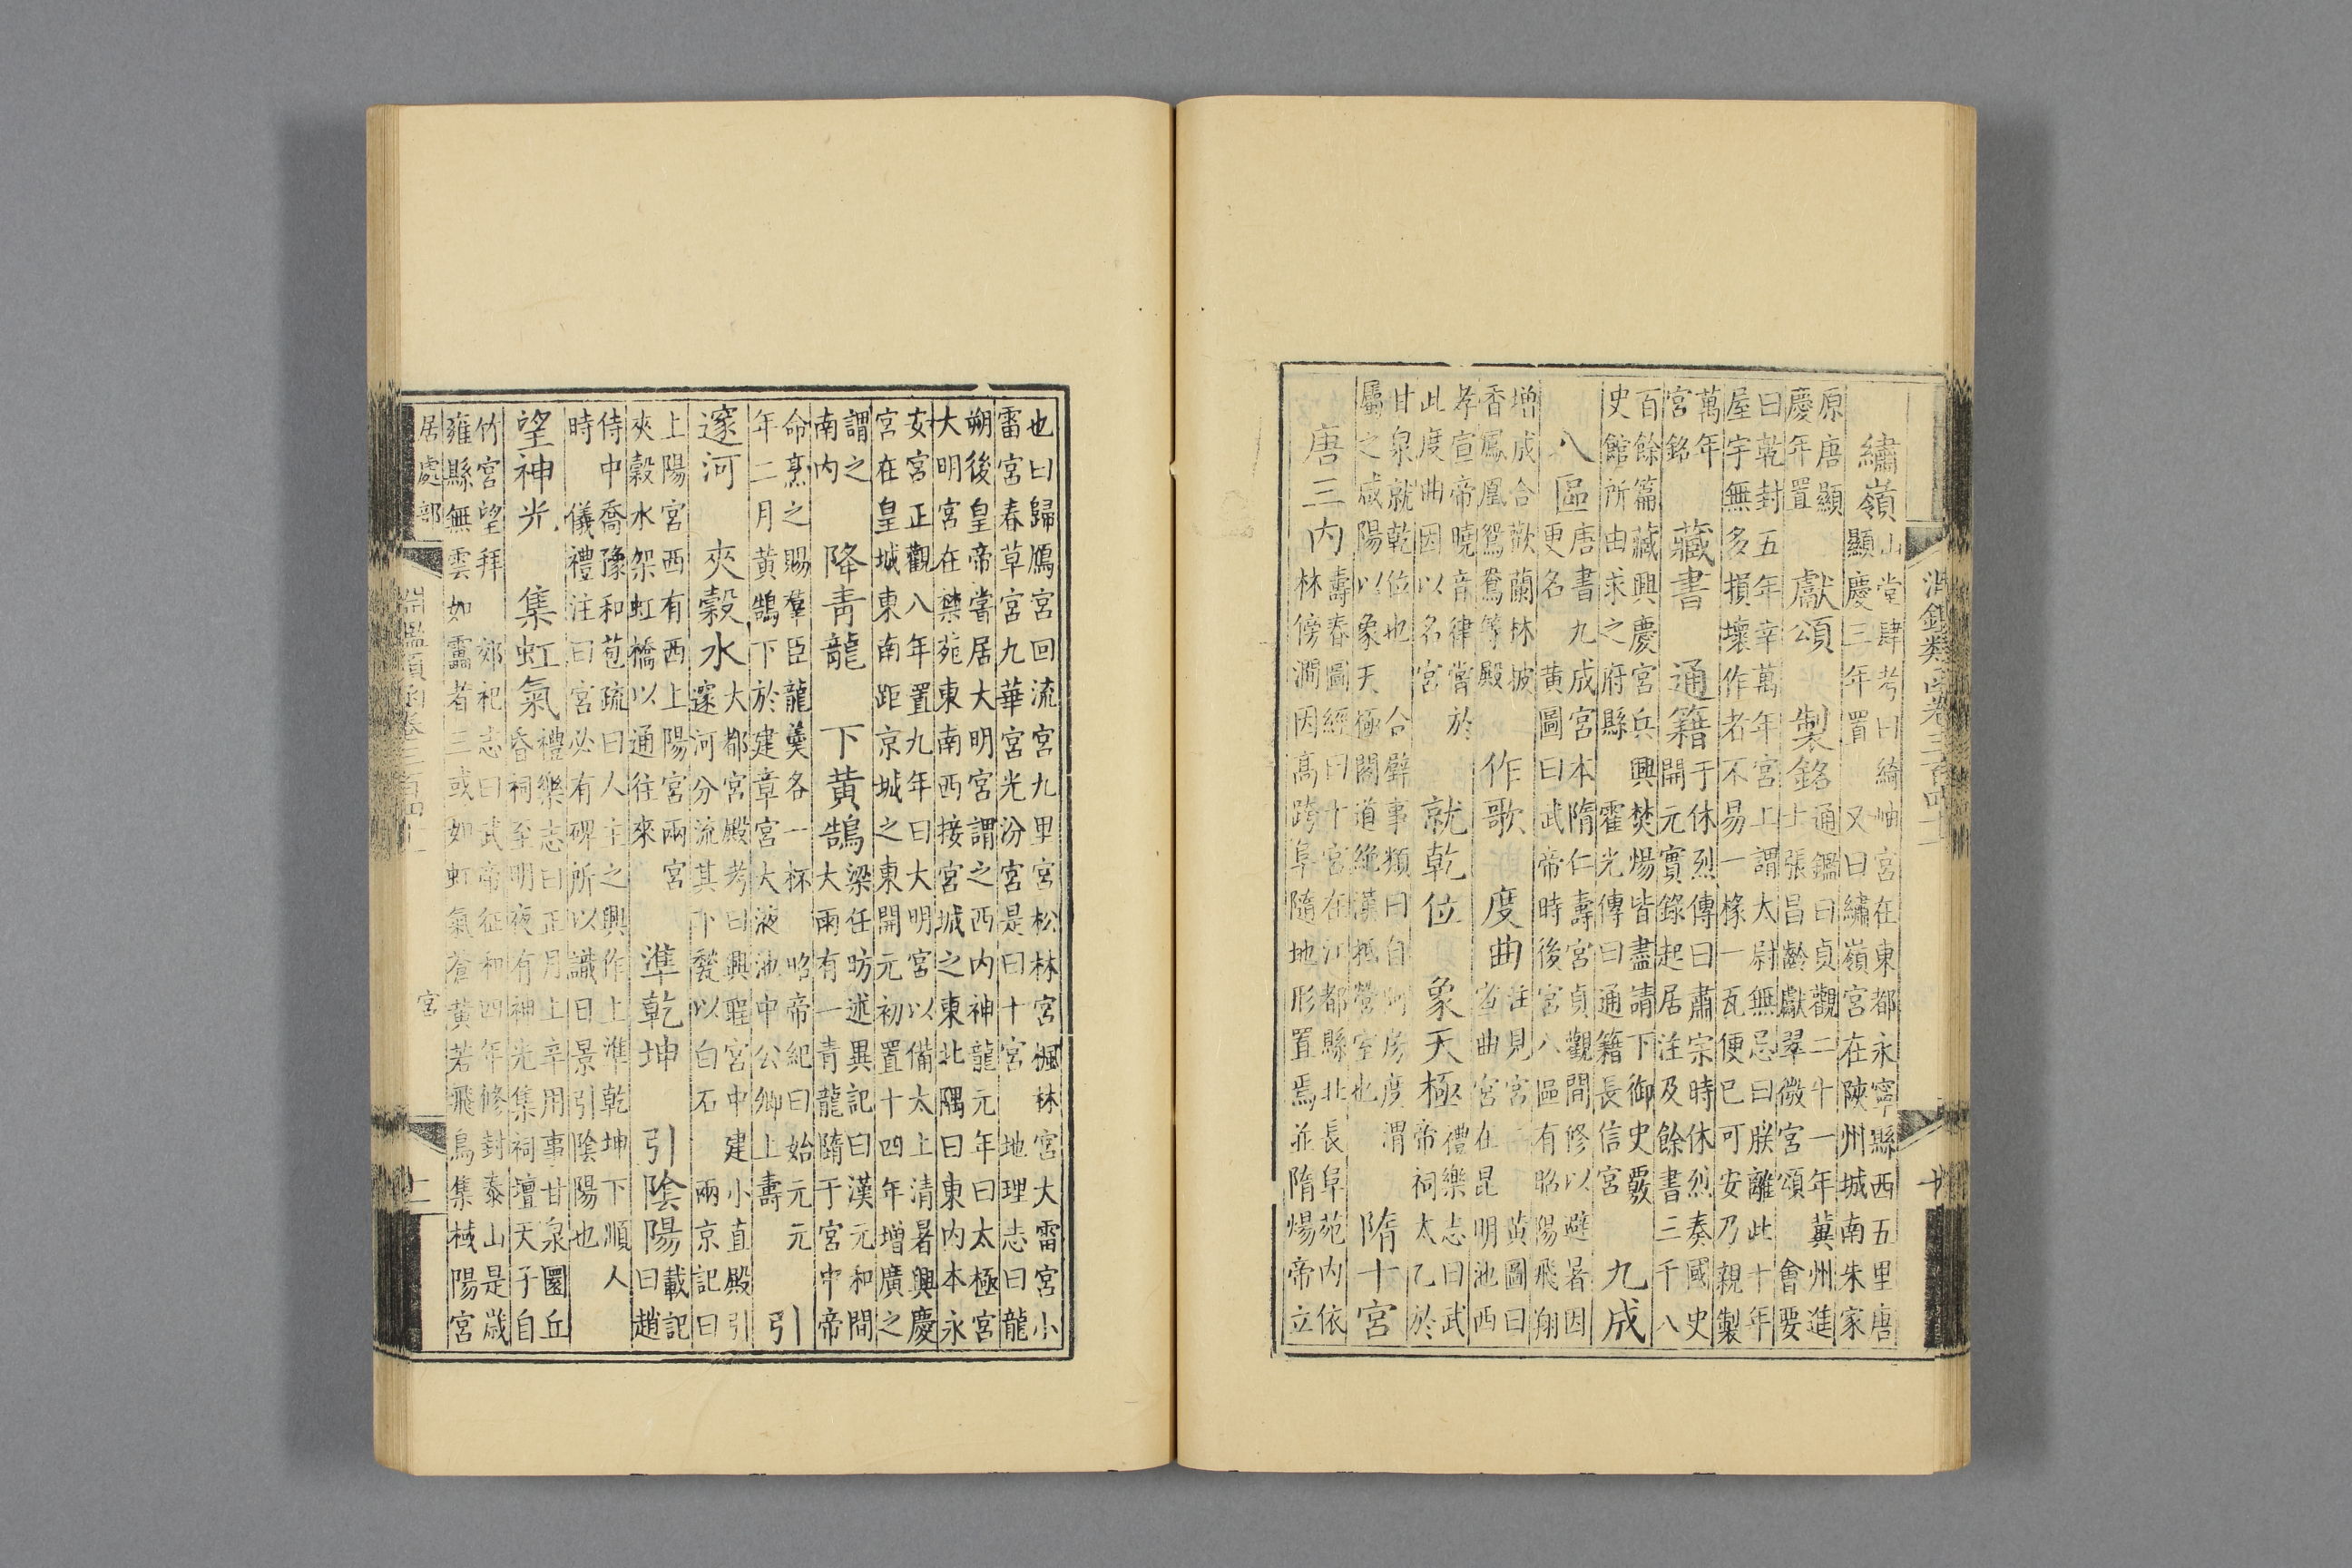 淵鑑類函卷三百四十一
繡嶺 山堂肆考曰綺岫宮在東都永寧縣西五里唐
顯慶三年置 又曰繡嶺宮在陝州城南朱家
原唐顯
慶年置 獻頌 製銘 通鑑曰貞觀二十一年冀州進
士張昌齡獻翠微宮頌 會要
曰乾封五年幸萬年宮上謂太尉無忌曰朕離此十年
屋宇無多損壞作者不易一椽一瓦便已可安乃親製
萬年
宮銘 藏書 通籍 于休烈傳曰肅宗時休烈奏國史
開元實錄起居注及餘書三千八
百餘篇藏興慶宮兵興焚煬皆盡請下御史覈
史館所由求之府縣 霍光傳曰通籍長信宮 九成
八區 唐書九成宮本隋仁壽宮貞觀間修以避暑因
更名 黃圖曰武帝時後宮八區有昭陽飛翔
增成合歡蘭林披
香鳳凰鴛鴦等殿 作歌 度曲 注見宮 黃圖曰
宣曲宮在昆明池西
孝宣帝曉音律嘗於
此度曲因以名宮 就乾位 象天極 禮樂志曰武
帝祠太乙於
甘泉就乾位也 合璧事類曰自阿房度渭
屬之咸陽以象天極閣道絕漢抵營室也 隋十宮
唐三內 壽春圖經曰十宮在江都縣北長阜苑內依
林傍澗因高跨阜隨地形置焉並隋煬帝立
也曰歸鴈宮回流宮九里宮松林宮楓林宮大雷宮小
雷宮春草宮九華宮光汾宮是曰十宮 地理志曰龍
朔後皇帝嘗居大明宮謂之西內神龍元年曰太極宮
大明宮在禁苑東南西接宮城之東北隅曰東內本永
安宮正觀八年置九年曰大明宮以備太上清暑興慶
宮在皇城東南距京城之東開元初置十四年增廣之
謂之
南內 降青龍 下黃鵠 梁任昉述異記曰漢元和間
大雨有一青龍隨于宮中帝
命烹之賜羣臣龍羹各一杯 昭帝紀曰始元元
年二月黃鵠下於建章宮大液池中公卿上壽 引
邃河 夾穀水 大都宮殿考曰興聖宮中建小直殿引
邃河分流其下甃以白石 兩京記曰
上陽宮西有西上陽宮兩宮
夾穀水架虹橋以通往來 準乾坤 引陰陽 載記
曰趙
侍中喬豫和苞疏曰人主之興作上準乾坤下順人
時 儀禮注曰宮必有碑所以識日景引陰陽也
望神光 集虹氣 禮樂志曰正月上辛用事甘泉圜丘
昏祠至明夜有神光集祠壇天子自
竹宮望拜 郊祀志曰武帝征和四年修封泰山是歲
雍縣無雲如靁者三或如虹氣蒼黃若飛鳥集棫陽宮
居處部 宮 二